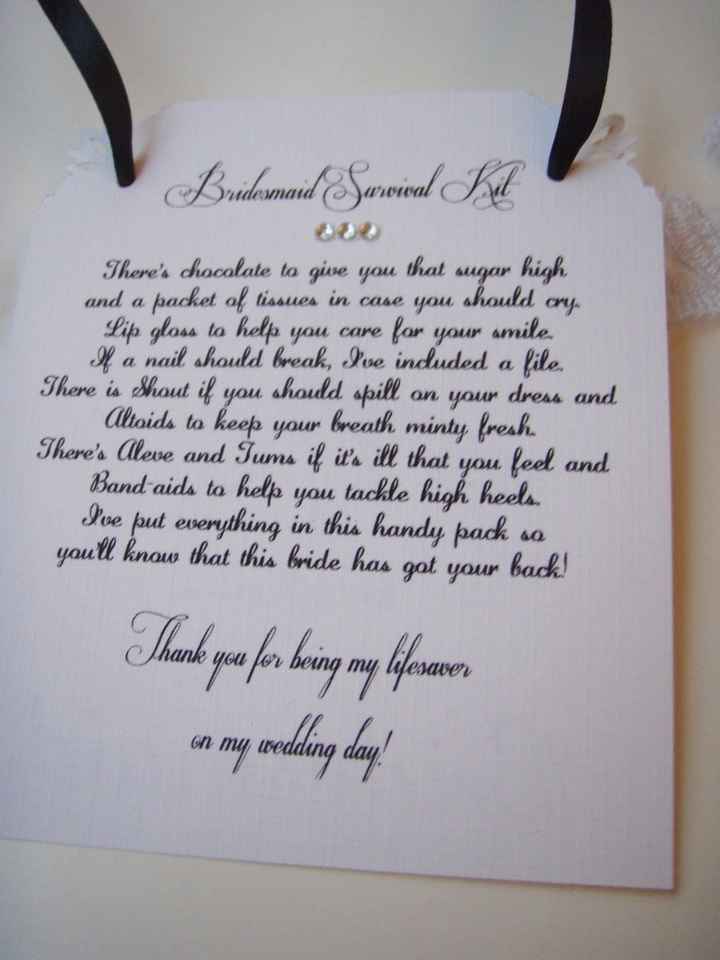 Bridesmaid Survival Kit
There's chocolate to give you that sugar high
and a packet of tissues in case you should cry.
Lip gloss to help you care for your smile.
If a nail should break, I've included a file.
There is Shout if you should spill on your dress and
Altoids to keep your breath minty fresh.
There's Aleve and Tums if it's ill that you feel and
Band-aids to help you tackle high heels.
I've put everything in this handy pack so
you'll know that this bride has got your back!
Thank you for being my lifesaver
on my wedding day!